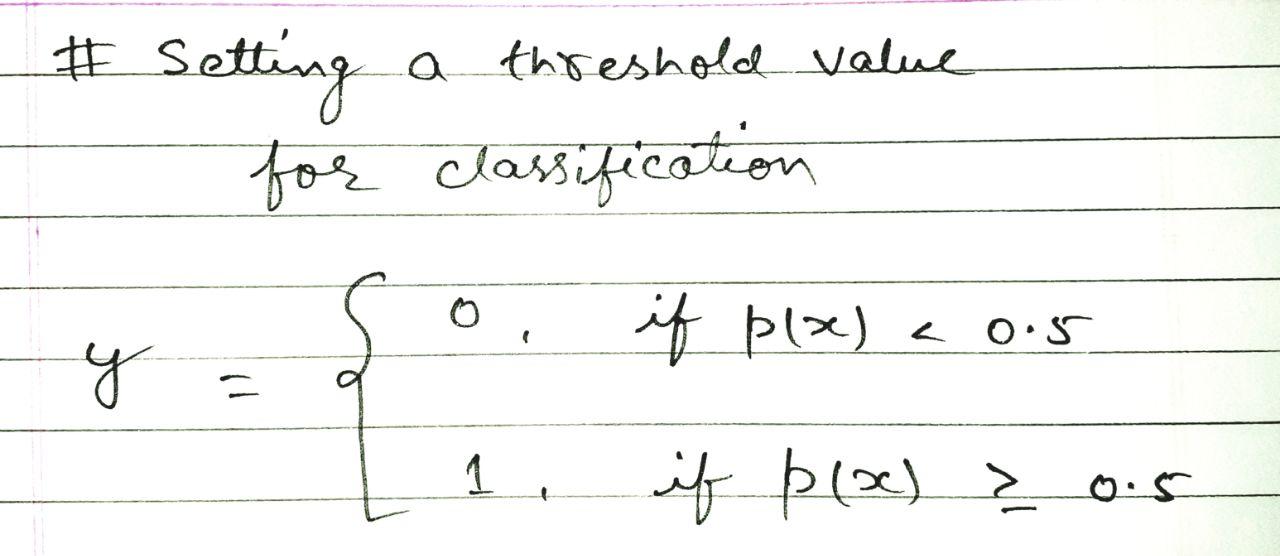 # Setting a threshold value
for classification
y = { 0, if p(x) < 0.5
1, if p(x) ≥ 0.5